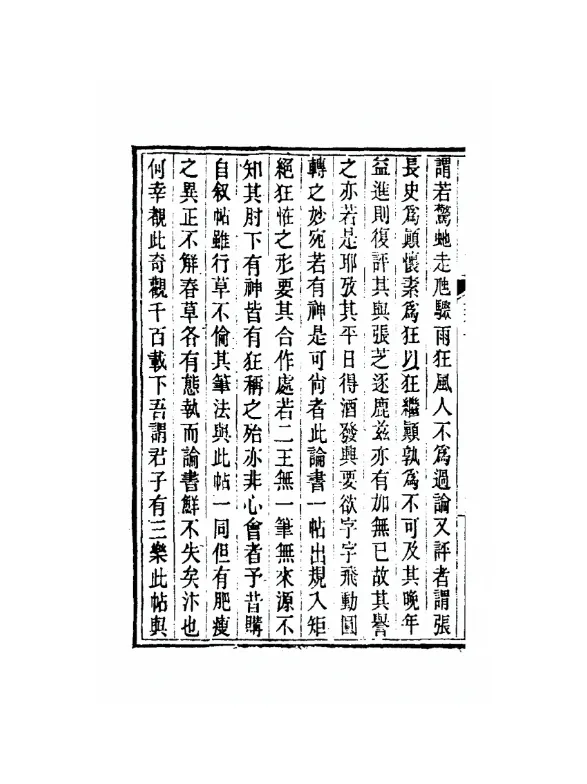 謂若驚虵走虺驟雨狂風人不爲過論又評者謂張
長史爲顚懷素爲狂以狂繼顚孰爲不可及其晚年
益進則復評其與張芝逐鹿兹亦有加無已故其譽
之亦若是耶攷其平日得酒發興要欲字字飛動圓
轉之妙宛若有神是可尙者此論書一帖出規入矩
絕狂怪之形要其合作處若二王無一筆無來源不
知其肘下有神皆有狂稱之殆亦非心會者予昔購
自叙帖雖行草不倫其筆法與此帖一同但有肥瘦
之異正不解春草各有態執而論書鮮不失矣汴也
何幸覩此奇觀千百載下吾謂君子有三樂此帖與